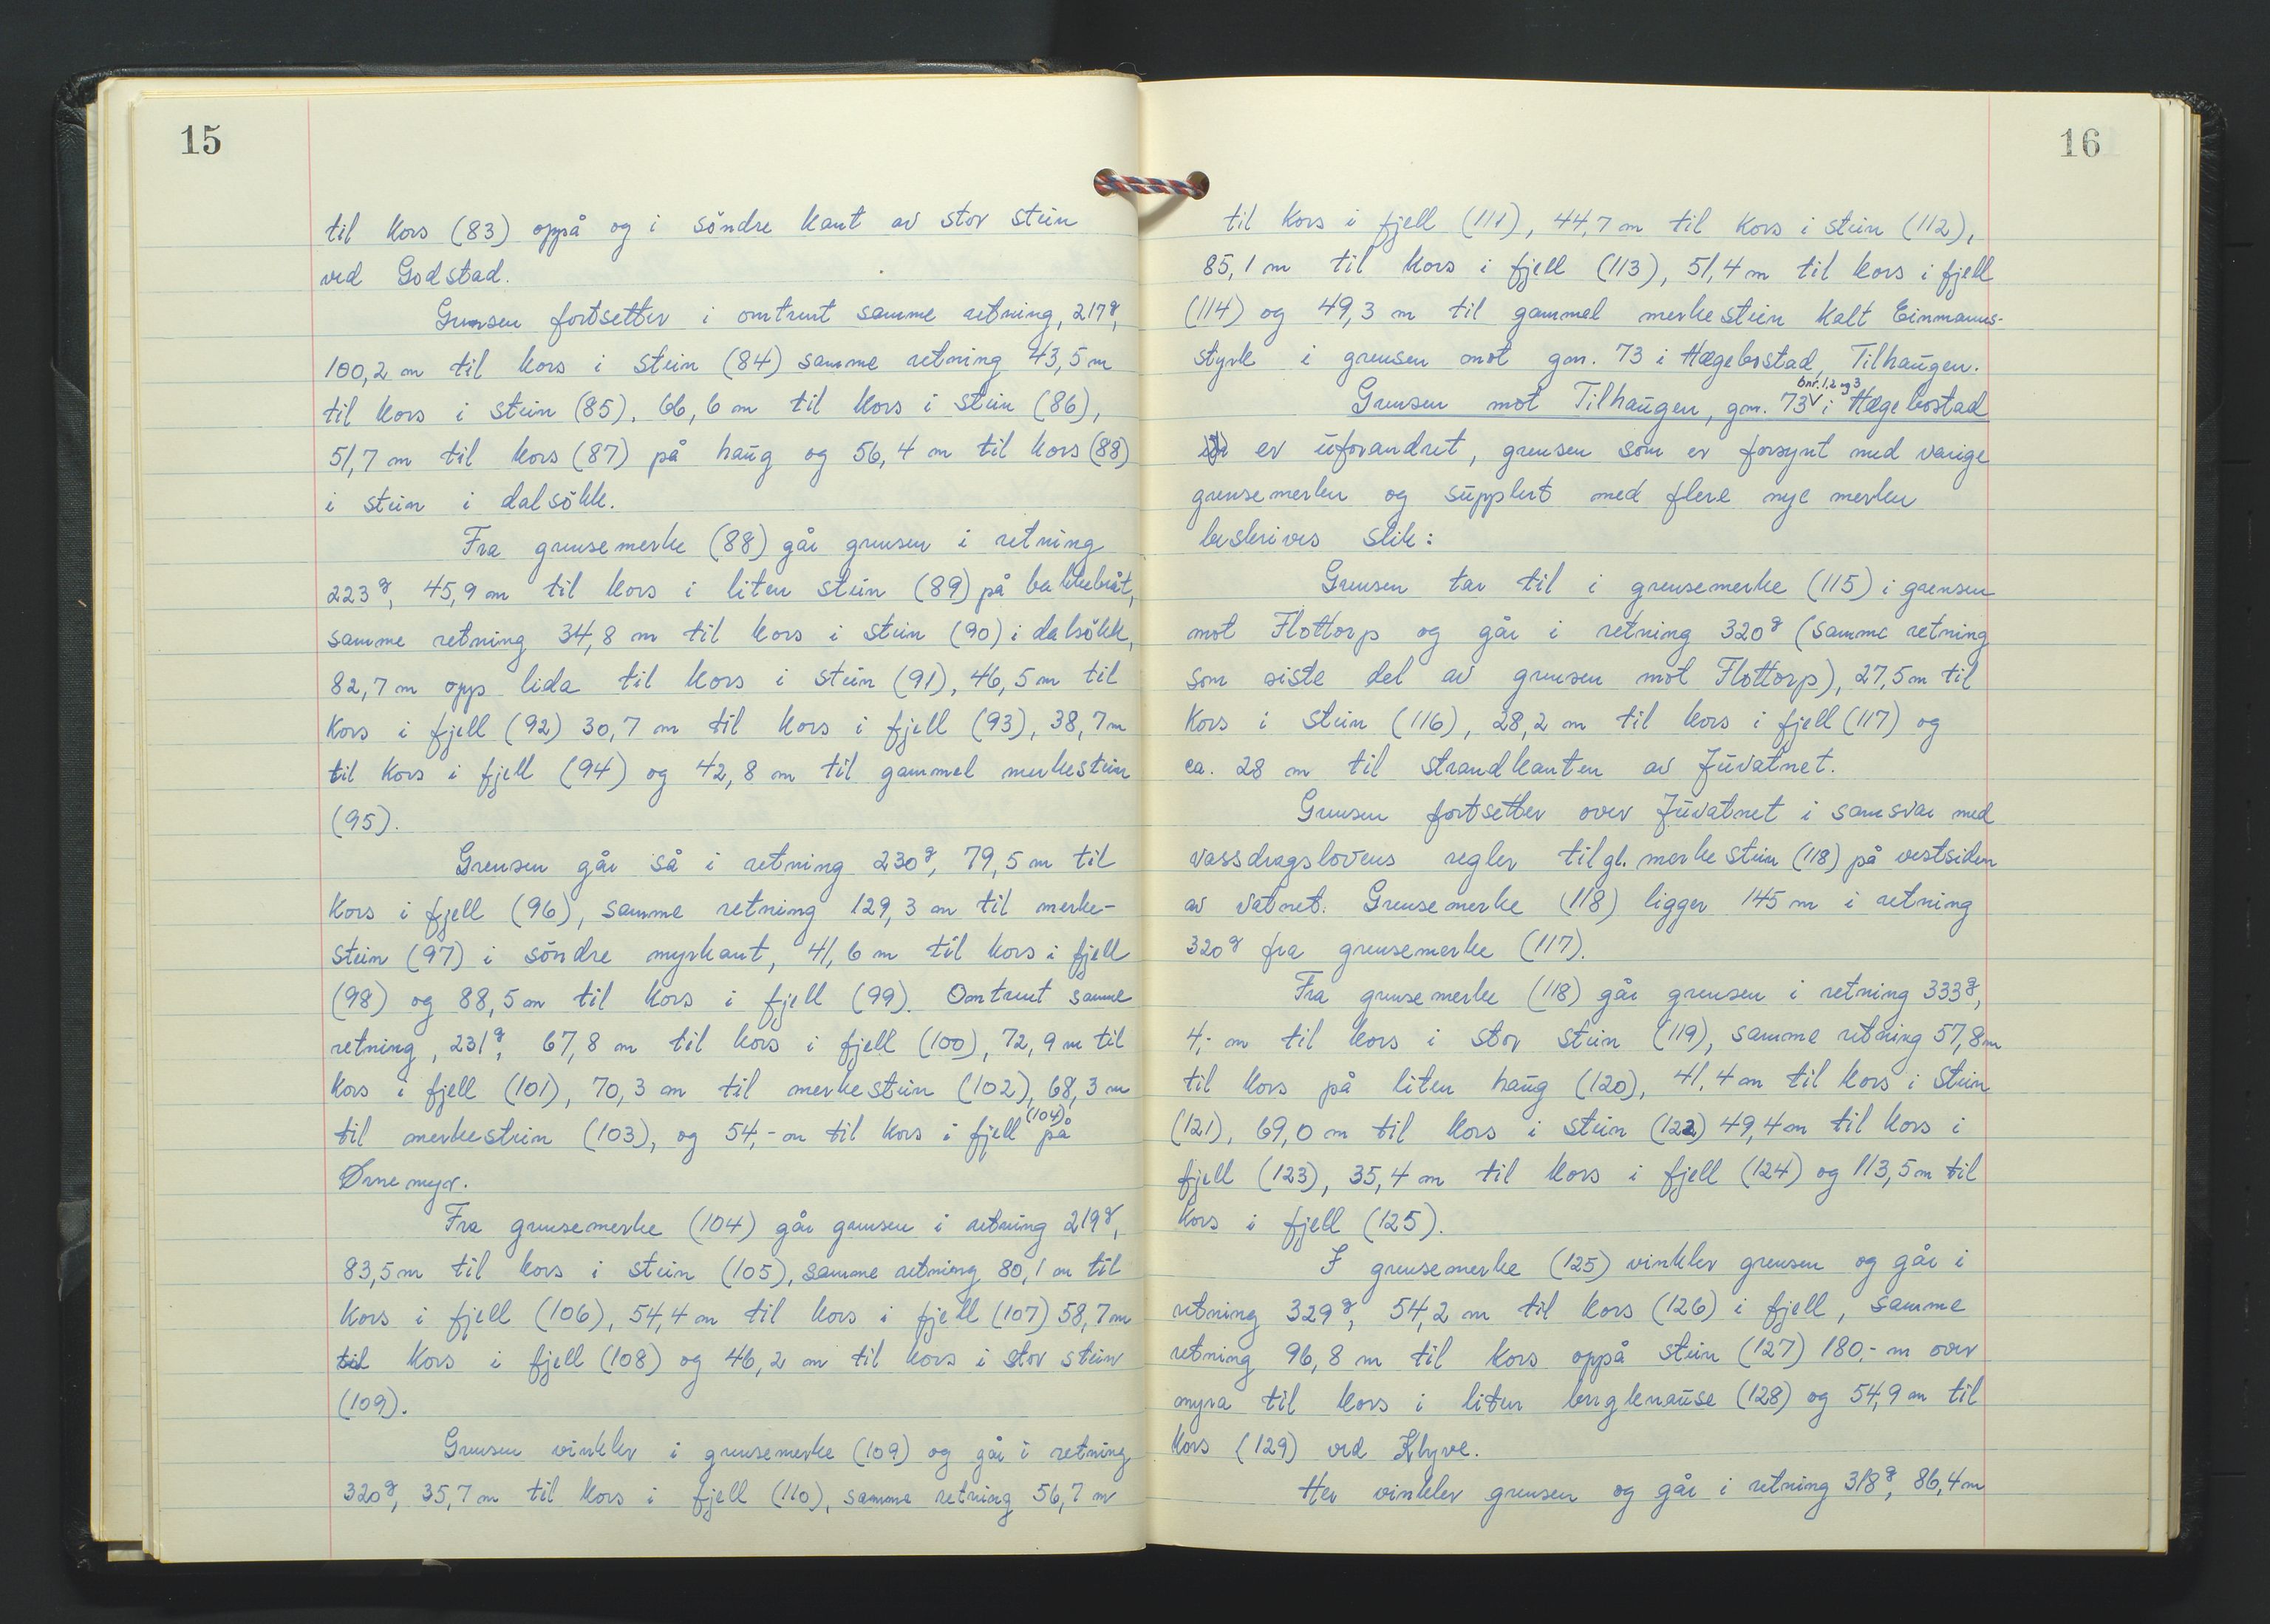 15
til kors (83) oppå og i söndre kant av stor stein
ved Godstad.
Grensen fortsetter i omtrent samme retning, 217g,
100,2 m til kors i stein (84) samme retning 43,5 m
til kors i stein (85), 66,6 m til kors i stein (86),
51,7 m til kors (87) på haug og 56,4 m til kors (88)
i stein i dalsökk.
Fra grensemerke (88) går grensen i retning
223g, 45,9 m til kors i liten stein (89) på bakkebråt,
samme retning 34,8 m til kors i stein (90) i dalsökk,
82,7 m opp lida til kors i stein (91), 46,5 m til
kors i fjell (92) 30,7 m til kors i fjell (93), 38,7 m
til kors i fjell (94) og 42,8 m til gammel merkestein
(95).
Grensen går så i retning 230g, 79,5 m til
kors i fjell (96), samme retning 129,3 m til merke-
stein (97) i söndre myrkant, 41,6 m til kors i fjell
(98) og 88,5 m til kors i fjell (99). Omtrent samme
retning, 231g, 67,8 m til kors i fjell (100), 72,9 m til
kors i fjell (101), 70,3 m til merkestein (102), 68,3 m
til merkestein (103), og 54,- m til kors i fjell (104) på
Ørnemyr.
Fra grensemerke (104) går grensen i retning 219g,
83,5 m til kors i stein (105), samme retning 80,1 m til
kors i fjell (106), 54,4 m til kors i fjell (107) 58,7 m
til kors i fjell (108) og 46,2 m til kors i stor stein
(109).
Grensen vinkler i grensemerke (109) og går i retning
320g, 35,7 m til kors i fjell (110), samme retning 56,7 m
16
til kors i fjell (111), 44,7 m til kors i stein (112),
85,1 m til kors i fjell (113), 51,4 m til kors i fjell
(114) og 49,3 m til gammel merkestein kalt Einmanns-
styrk i grensen mot gnr. 73 i Hægebostad, Tilhaugen.
Grensen mot Tilhaugen, gnr. 73 bnr. 1,2 og 3 i Hægebostad
er uforandret, grensen som er forsynt med varige
grensemerker og supplert med flere nye merker
beskrives slik:
Grensen tar til i grensemerke (115) i grensen
mot Flottorp og går i retning 320g (samme retning
som siste del av grensen mot Flottorp), 27,5 m til
kors i stein (116), 28,2 m til kors i fjell (117) og
ca. 28 m til strandkanten av Juvatnet.
Grensen fortsetter over Juvatnet i samsvar med
vassdragslovens regler til gl. merkestein (118) på vestsiden
av vatnet. Grensemerke (118) ligger 145 m i retning
320g fra grensemerke (117).
Fra grensemerke (118) går grensen i retning 333g,
4,- m til kors i stor stein (119), samme retning 57,8 m
til kors på liten haug (120), 41,4 m til kors i stein
(121), 69,0 m til kors i stein (122) 49,4 m til kors i
fjell (123), 35,4 m til kors i fjell (124) og 113,5 m til
kors i fjell (125).
I grensemerke (125) vinkler grensen og går i
retning 329g, 54,2 m til kors (126) i fjell, samme
retning 96,8 m til kors oppå stein (127) 180,- m over
myra til kors i liten bergknause (128) og 54,9 m til
kors (129) ved Klyve.
Her vinkler grensen og går i retning 318g, 86,4 m